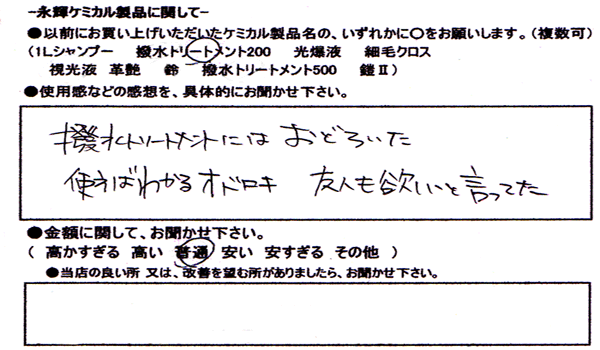 -永輝ケミカル製品に関して-
●以前にお買い上げいただいたケミカル製品名の、いずれかに〇をお願いします。（複数可）
（1Lシャンプー　撥水トリートメント200　光爆液　細毛クロス
視光液　革艶　鈴　撥水トリートメント500　鎧Ⅱ）
●使用感などの感想を、具体的にお聞かせ下さい。
撥水トリートメントには おどろいた
使えばわかるオドロキ　友人も欲しいと言ってた
●金額に関して、お聞かせ下さい。
（ 高かすぎる　高い　普通　安い　安すぎる　その他 ）
●当店の良い所 又は、改善を望む所がありましたら、お聞かせ下さい。